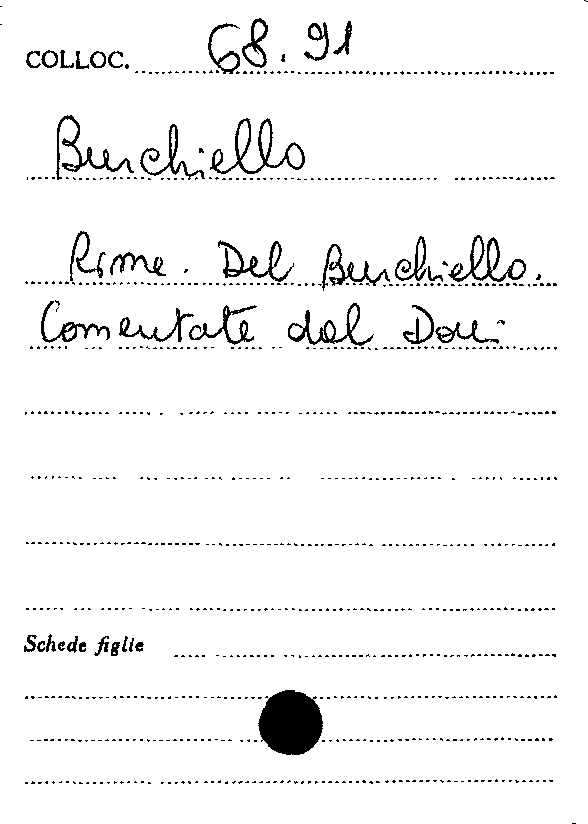 COLLOC. 68.91
Burchiello
Rime. Del Burchiello.
Comentate dal Doni
Schede figlie